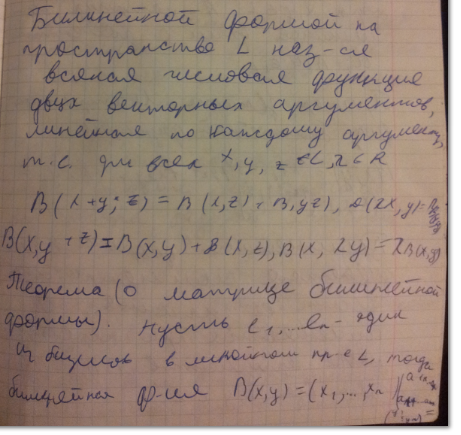 Билинейной формой на
пространстве L наз-ся
всякая числовая функция
двух векторных аргументов,
линейная по каждому аргументу,
т.е. при всех x, y, z ∈ L, λ ∈ R
B(x+y; z) = B(x,z) + B(y,z), B(λx, y) =
B(x,y+z) = B(x,y) + B(x,z), B(x, λy) = λB(x,y)
Теорема (о матрице билинейной
формы). Пусть e1, ... en - один
из базисов в линейном пр-ве L, тогда
билинейная ф-ия B(x,y) = (x1, ..., xn